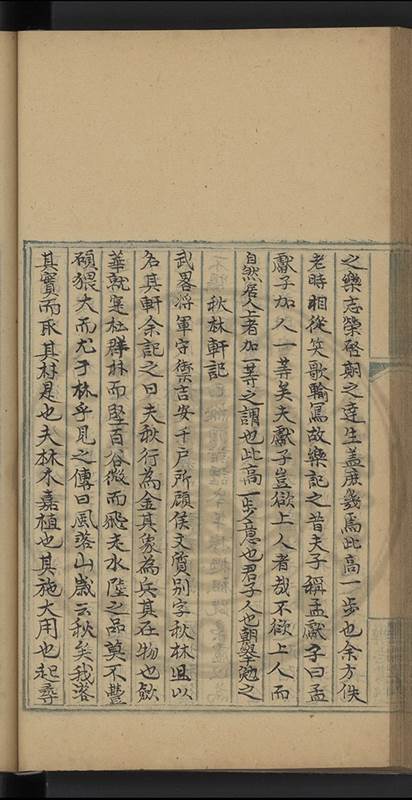 之樂志榮啓期之達生盖庶幾焉此高一步也余方佚
老時相從笑歌輸寫故樂記之昔夫子稱孟獻子曰孟
獻子加人一等矣夫獻子豈欲上人者哉不欲上人而
自然居人上者加一等之謂也此高一步意也君子人也朝舉勉之
秋林軒記
武畧將軍守禦吉安千戶所顧侯文質别字秋林且以
名其軒余記之曰夫秋行為金其象為兵其在物也斂
華就寔杜群林而堅百谷微而飛走水陸之品莫不豐
碩猥大而尤于林乎見之傳曰風落山歲云秋矣我落
其實而取其材是也夫林木嘉植也其施大用也起尋